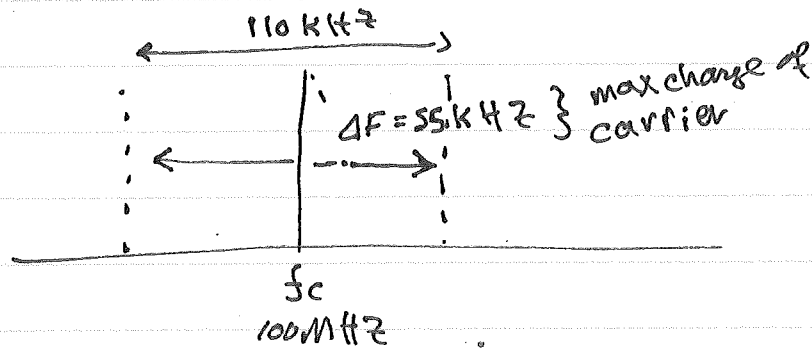 110 kHz
ΔF = 55 kHz } max change of
carrier
fc
100MHz